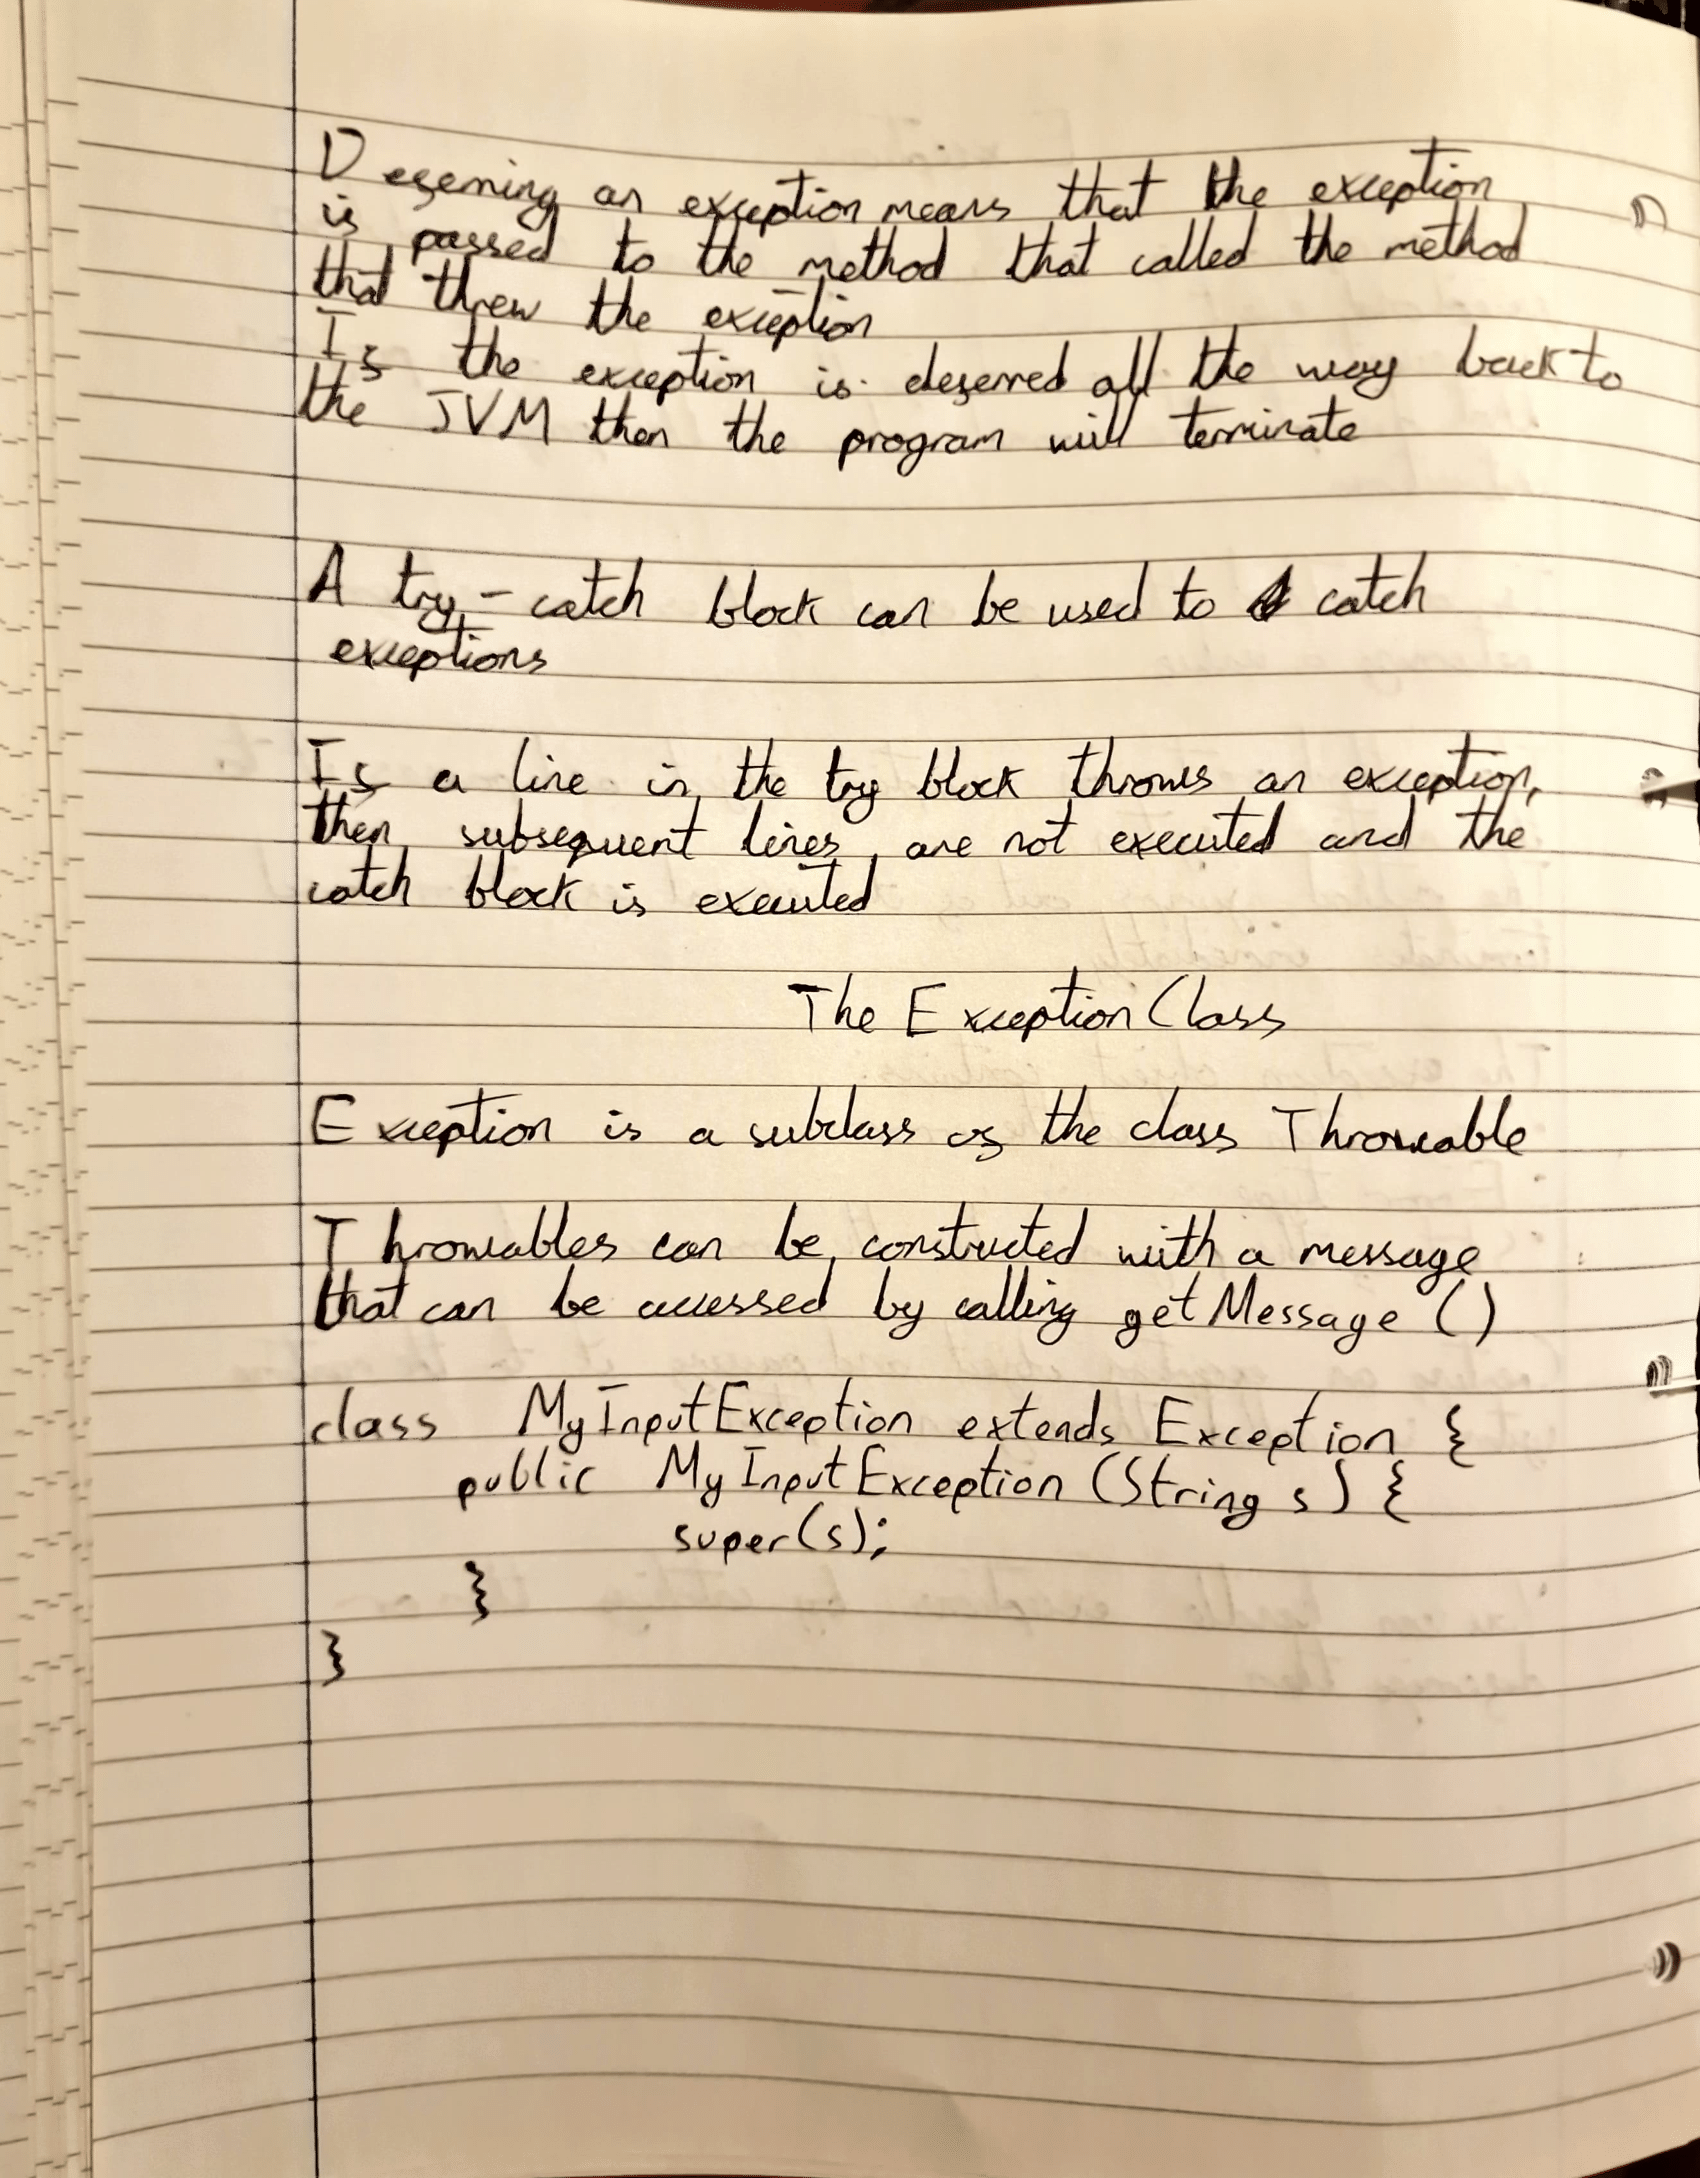 Deferring an exception means that the exception
is passed to the method that called the method
that threw the exception
If the exception is deferred all the way back to
the JVM then the program will terminate
A try-catch block can be used to catch
exceptions
If a line in the try block throws an exception,
then subsequent lines, are not executed and the
catch block is executed
The Exception Class
Exception is a subclass of the class Throwable
Throwables can be constructed with a message
that can be accessed by calling getMessage ()
class MyInputException extends Exception {
public MyInputException (String s) {
super(s);
}
}